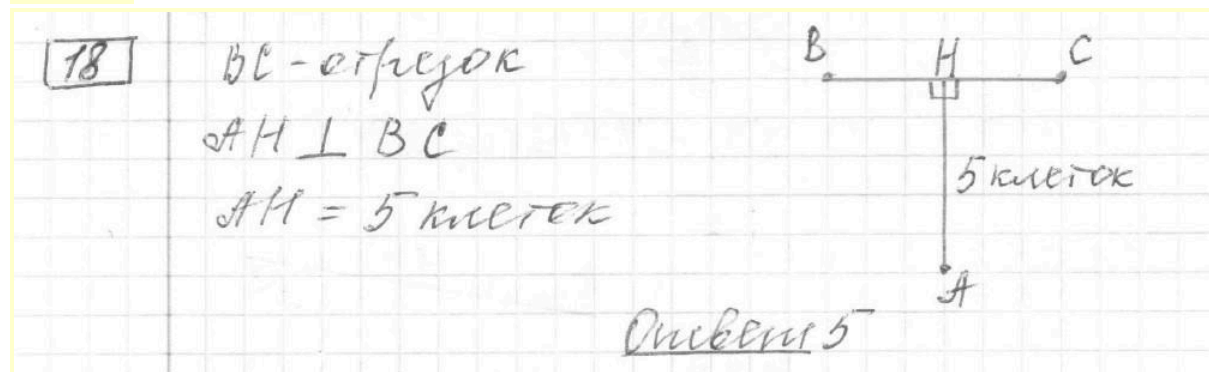 18
BC - отрезок
AH ⊥ BC
AH = 5 клеток
B H C
5 клеток
A
Ответ 5